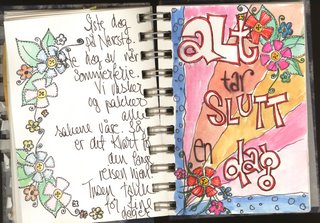 Siste dag
på Narestø.
Siste dag av vår
sommerferie.
Vi vasker
og pakker
alle
sakene våre. Så
er det klart for
den lange
reisen hjem.
for
dager
ALT
tar
SLUTT
en
dag